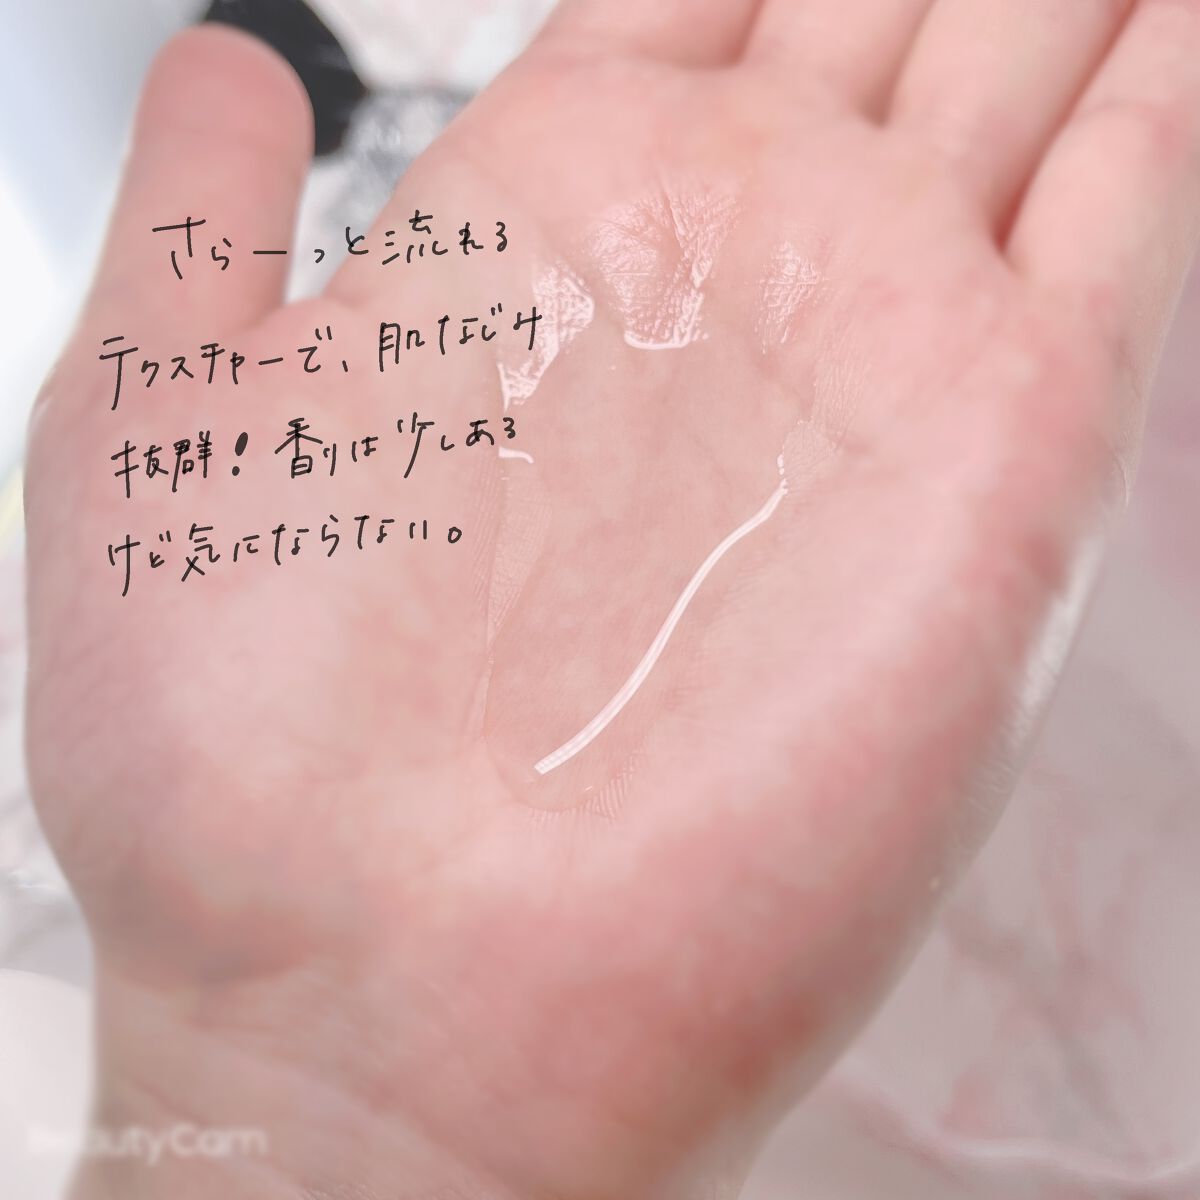 さらーっと流れる
テクスチャーで、肌なじみ
抜群！香りは少しある
けど気にならない。
beautyCam